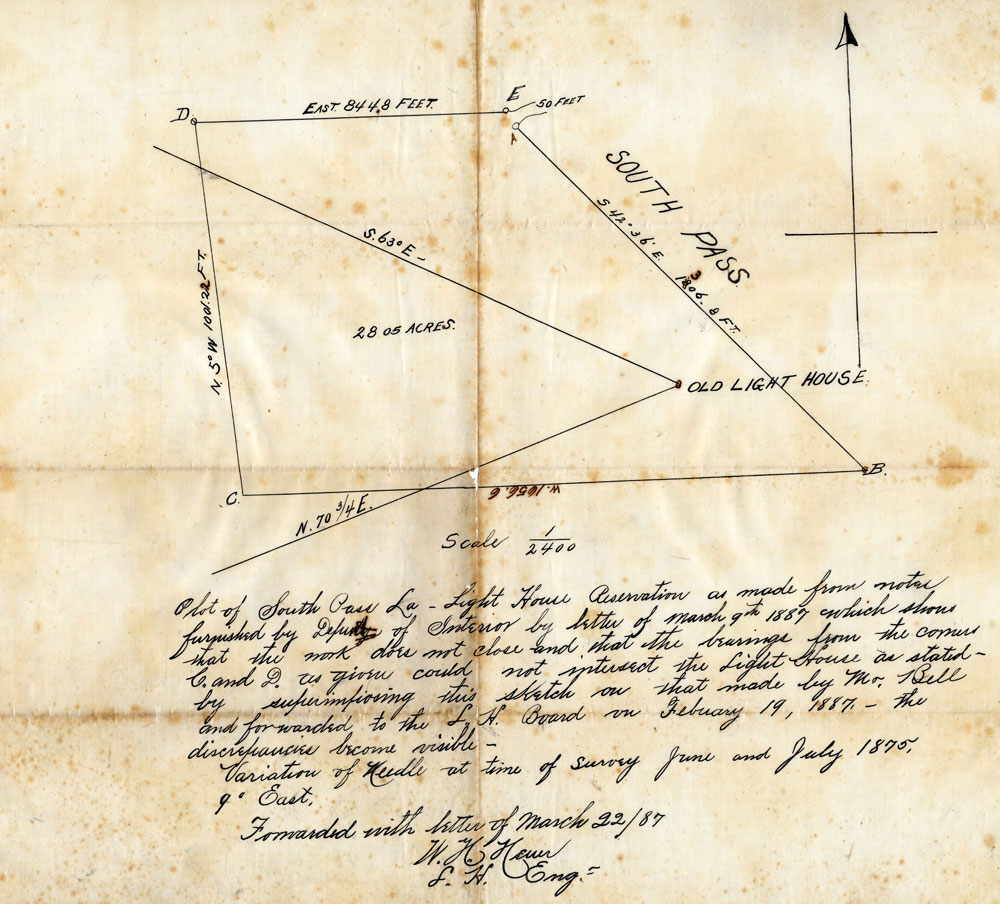 E
D
EAST 844.8 FEET.
50 FEET
A
SOUTH PASS
S 42° 36' E. 1306.8 FT.
S. 63° E
N. 5° W 1001.22 FT.
28 05 ACRES.
OLD LIGHT HOUSE
B.
C.
W. 1656.6
N. 70 3/4 E.
Scale 1/2400
Plot of South Pass La - Light House Reservation as made from notes
furnished by of Interior by letter of March 9th 1887 which shows
that the work does not close and that the bearings from the corners
C. and D. as given could not intersect the Light House as stated -
by superimposing this sketch on that made by Mr. Bell
and forwarded to the L. H. Board on Febuary 19, 1887. - the
discrepancies become visible -
Variation of Needle at time of survey June and July 1875,
9° East.
Forwarded with letter of March 22/87
W. H. Heuer
L. H. Eng.